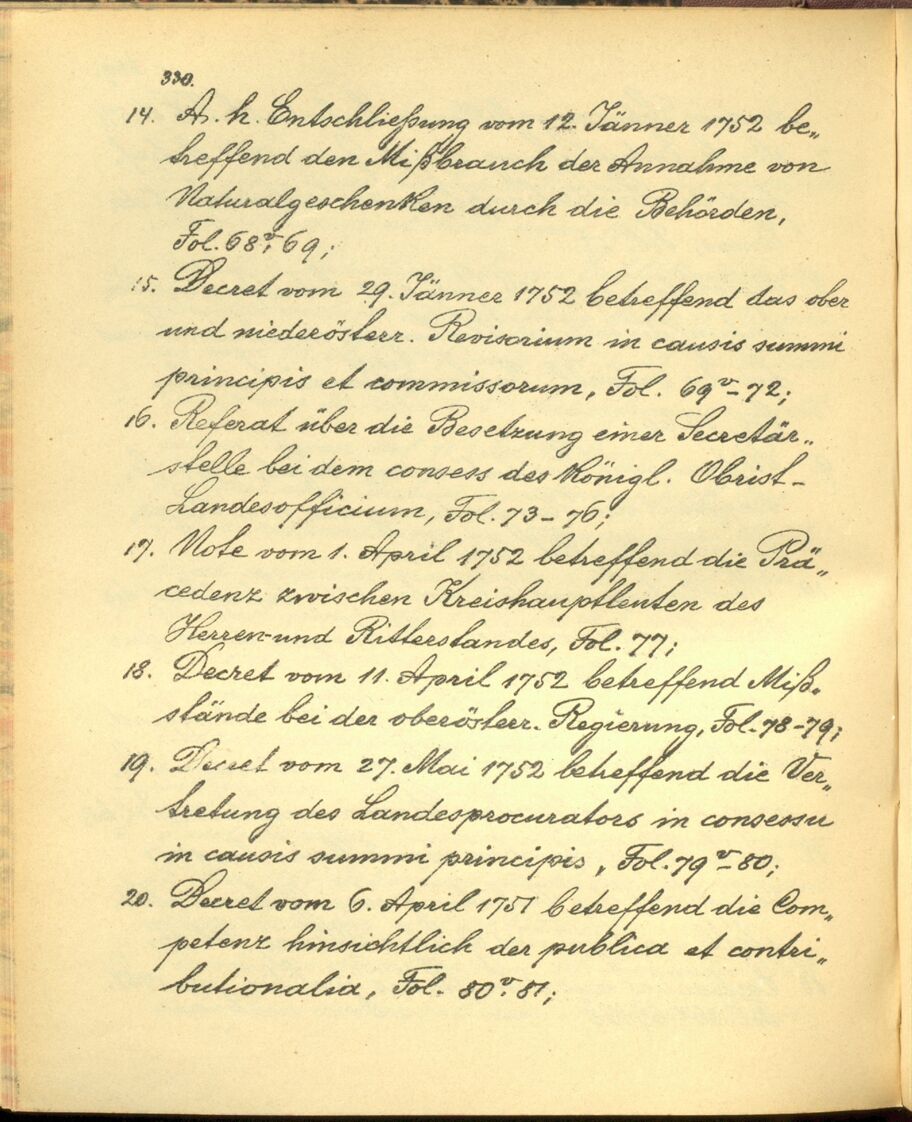 330.
14. A. h. Entschließung vom 12. Jänner 1752 be„
treffend den Mißbrauch der Annahme von
Naturalgeschenken durch die Behörden,
Fol. 68ᵛ, 69;
15. Decret vom 29. Jänner 1752 betreffend das ober
und niederösterr. Revisorium in causis summi
principis et commissorum, Fol. 69ᵛ–72;
16. Referat über die Besetzung einer Secretär„
stelle bei dem consess des Königl. Obrist-
Landesofficium, Fol. 73–76;
17. Note vom 1. April 1752 betreffend die Prä„
cedenz zwischen Kreishauptleuten des
Herren- und Ritterstandes, Fol. 77;
18. Decret vom 11. April 1752 betreffend Miß„
stände bei der oberösterr. Regierung, Fol. 78–79;
19. Decret vom 27. Mai 1752 betreffend die Ver„
tretung des Landesprocurators in consessu
in causis summi principis, Fol. 79ᵛ–80;
20. Decret vom 6. April 1751 betreffend die Com„
petenz hinsichtlich der publica et contri„
butionalia, Fol. 80ᵛ. 81;